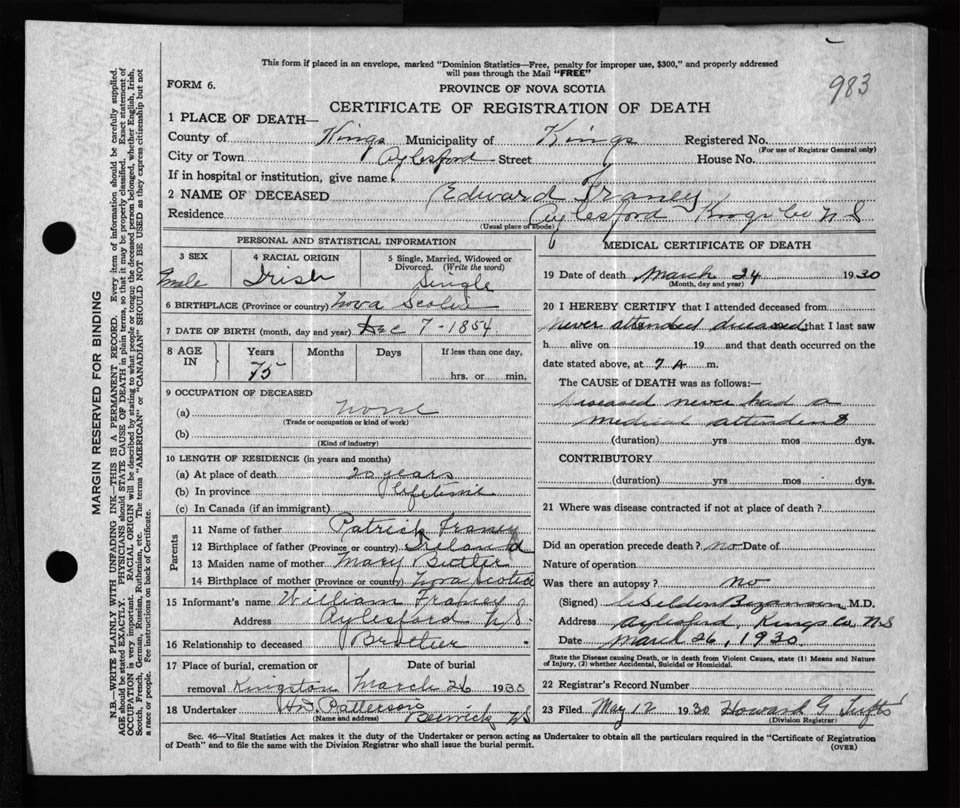 This form if placed in an envelope, marked "Dominion Statistics—Free, penalty for improper use, $300," and properly addressed
will pass through the Mail "FREE"
983
FORM 6.
PROVINCE OF NOVA SCOTIA
CERTIFICATE OF REGISTRATION OF DEATH
1 PLACE OF DEATH—
County of Kings Municipality of Kings Registered No.
(For use of Registrar General only)
City or Town Aylesford Street House No.
If in hospital or institution, give name
2 NAME OF DECEASED Edward Franey
Residence Aylesford Kings Co N S
(Usual place of abode)
PERSONAL AND STATISTICAL INFORMATION
3 SEX 4 RACIAL ORIGIN 5 Single, Married, Widowed or
Divorced. (Write the word)
male Irish Single
6 BIRTHPLACE (Province or country) Nova Scotia
7 DATE OF BIRTH (month, day and year) Dec 7 - 1854
8 AGE IN Years Months Days If less than one day,
75 hrs. or min.
9 OCCUPATION OF DECEASED
(a) none
(Trade or occupation or kind of work)
(b)
(Kind of industry)
10 LENGTH OF RESIDENCE (in years and months)
(a) At place of death 20 years
(b) In province lifetime
(c) In Canada (if an immigrant)
Parents
11 Name of father Patrick Franey
12 Birthplace of father (Province or country) Ireland
13 Maiden name of mother Mary Butler
14 Birthplace of mother (Province or country) Nova Scotia
15 Informant's name William Franey
Address Aylesford N S.
16 Relationship to deceased Brother
17 Place of burial, cremation or Date of burial
removal Kingston March 26 1930
18 Undertaker Patterson Berwick NS
(Name and address)
MEDICAL CERTIFICATE OF DEATH
19 Date of death March 24 1930
(Month, day and year)
20 I HEREBY CERTIFY that I attended deceased from
never attended deceased that I last saw
h alive on 19 and that death occurred on the
date stated above, at 7 A m.
The CAUSE OF DEATH was as follows:—
Diseased never had a
medical attendent
(duration) yrs mos dys.
CONTRIBUTORY
(duration) yrs mos dys.
21 Where was disease contracted if not at place of death?
Did an operation precede death? no Date of
Nature of operation
Was there an autopsy? no
(Signed) M.D.
Address Aylesford, Kings Co, N S
Date March 26, 1930
State the Disease causing Death, or in death from Violent Causes, state (1) Means and Nature
of Injury, (2) whether Accidental, Suicidal or Homicidal.
22 Registrar's Record Number
23 Filed May 12 1930 Howard G Tufts
(Division Registrar)
Sec. 46—Vital Statistics Act makes it the duty of the Undertaker or person acting as Undertaker to obtain all the particulars required in the "Certificate of Registration
of Death" and to file the same with the Division Registrar who shall issue the burial permit.
(OVER)
MARGIN RESERVED FOR BINDING
N.B.—WRITE PLAINLY WITH UNFADING INK—THIS IS A PERMANENT RECORD. Every item of information should be carefully supplied.
AGE should be stated EXACTLY. PHYSICIANS should STATE CAUSE OF DEATH in plain terms, so that it may be properly classified. Exact statement of
OCCUPATION is very important. RACIAL ORIGIN will be described by stating to what people or tongue the deceased person belonged, whether English, Irish,
Scotch, French, German, Russian, Ruthenian, etc. The terms "AMERICAN" or "CANADIAN" SHOULD NOT BE USED as they express citizenship but not
a race or people. Fee instructions on back of Certificate.